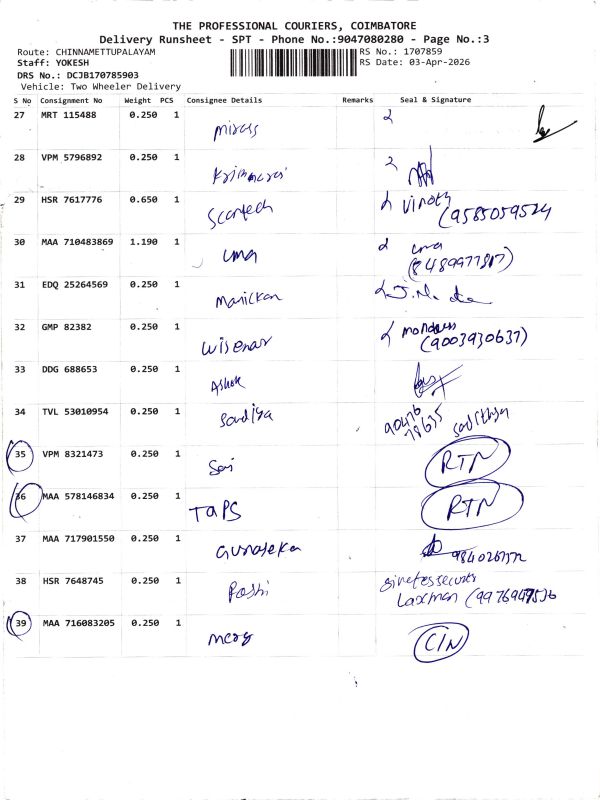 THE PROFESSIONAL COURIERS, COIMBATORE
Delivery Runsheet - SPT - Phone No.:9047080280 - Page No.:3
Route: CHINNAMETTUPALAYAM RS No.: 1707859
Staff: YOKESH RS Date: 03-Apr-2026
DRS No.: DCJB170785903
Vehicle: Two Wheeler Delivery
S No Consignment No Weight PCS Consignee Details Remarks Seal & Signature
27 MRT 115488 0.250 1
28 VPM 5796892 0.250 1
29 HSR 7617776 0.650 1 Scantech Vinoth
(9585059524
30 MAA 710483869 1.190 1 uma uma
(8489977817)
31 EDQ 25264569 0.250 1 Manickan
32 GMP 82382 0.250 1
(9003930637)
33 DDG 688653 0.250 1 Ashok
34 TVL 53010954 0.250 1 Soudiya 90476
78635
35 VPM 8321473 0.250 1 Sai RTN
36 MAA 578146834 0.250 1 TAPS RTN
37 MAA 717901550 0.250 1 Gunaseka
38 HSR 7648745 0.250 1
Laxman
39 MAA 716083205 0.250 1 C/N